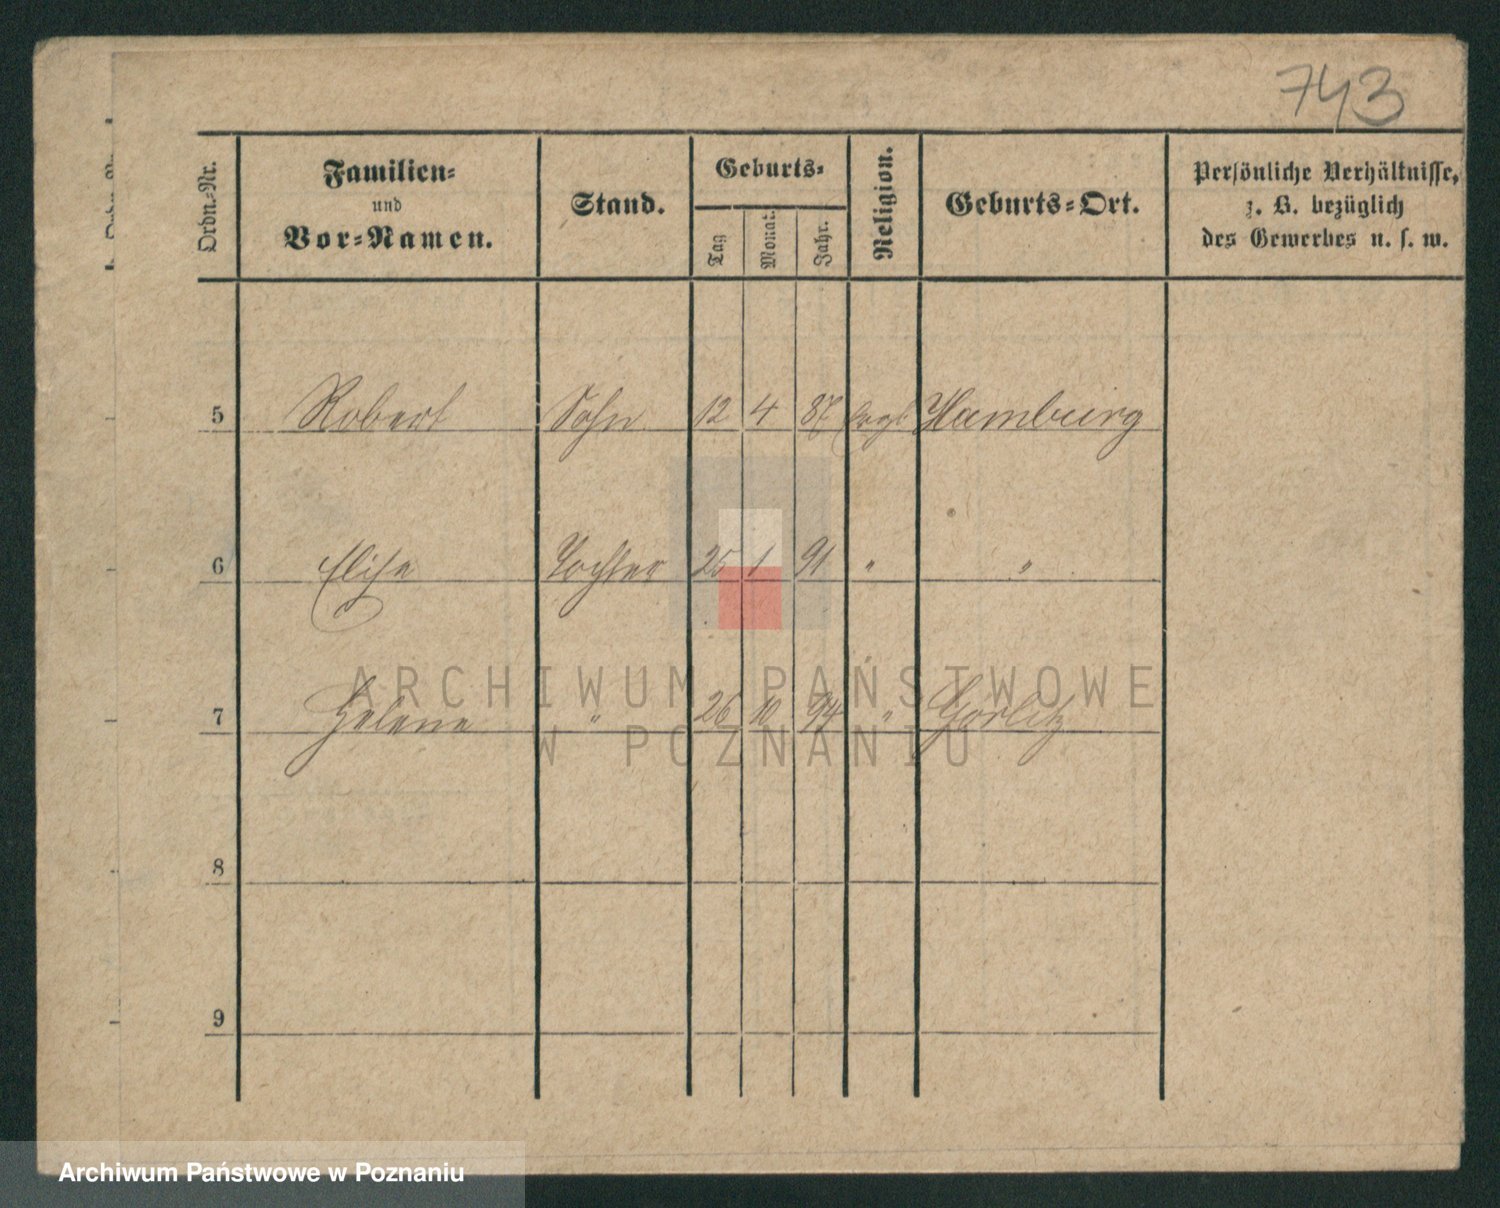 743
Ordn.-Nr.
Familien-
und
Vor-Namen.
Stand.
Geburts-
Tag
Monat.
Jahr.
Religion.
Geburts-Ort.
Persönliche Verhältnisse,
z. B. bezüglich
des Gewerbes u. s. w.
5 Robert Sohn 12 4 87 evgl Hamburg
6 Elise Tochter 25 1 91 " "
7 Helene " 26 10 94 " Görlitz
8
9
ARCHIWUM PAŃSTWOWE
W POZNANIU
Archiwum Państwowe w Poznaniu